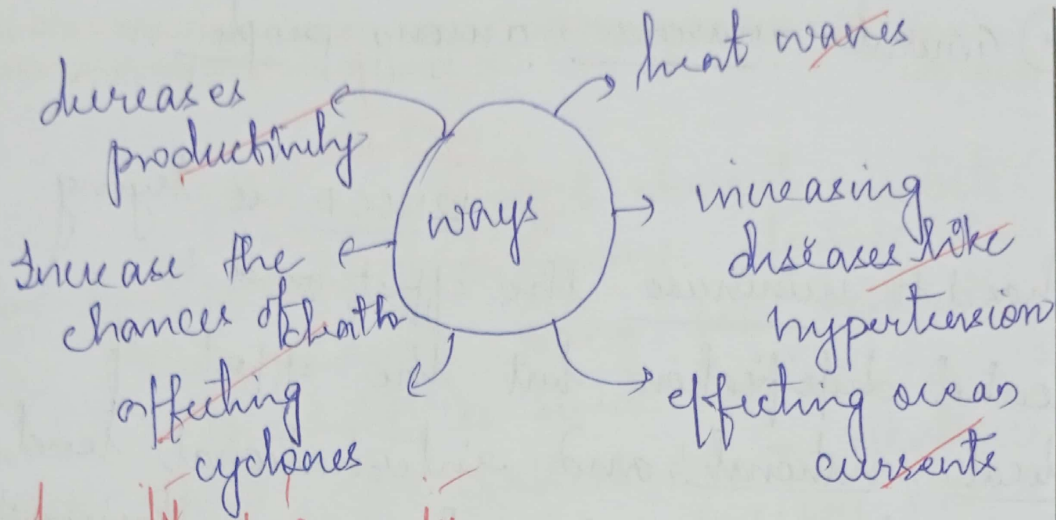 heat waves
decreases
productivity
ways
increasing
diseases like
hypertension
Increase the
chances of death
affecting
cyclones
effecting ocean
currents